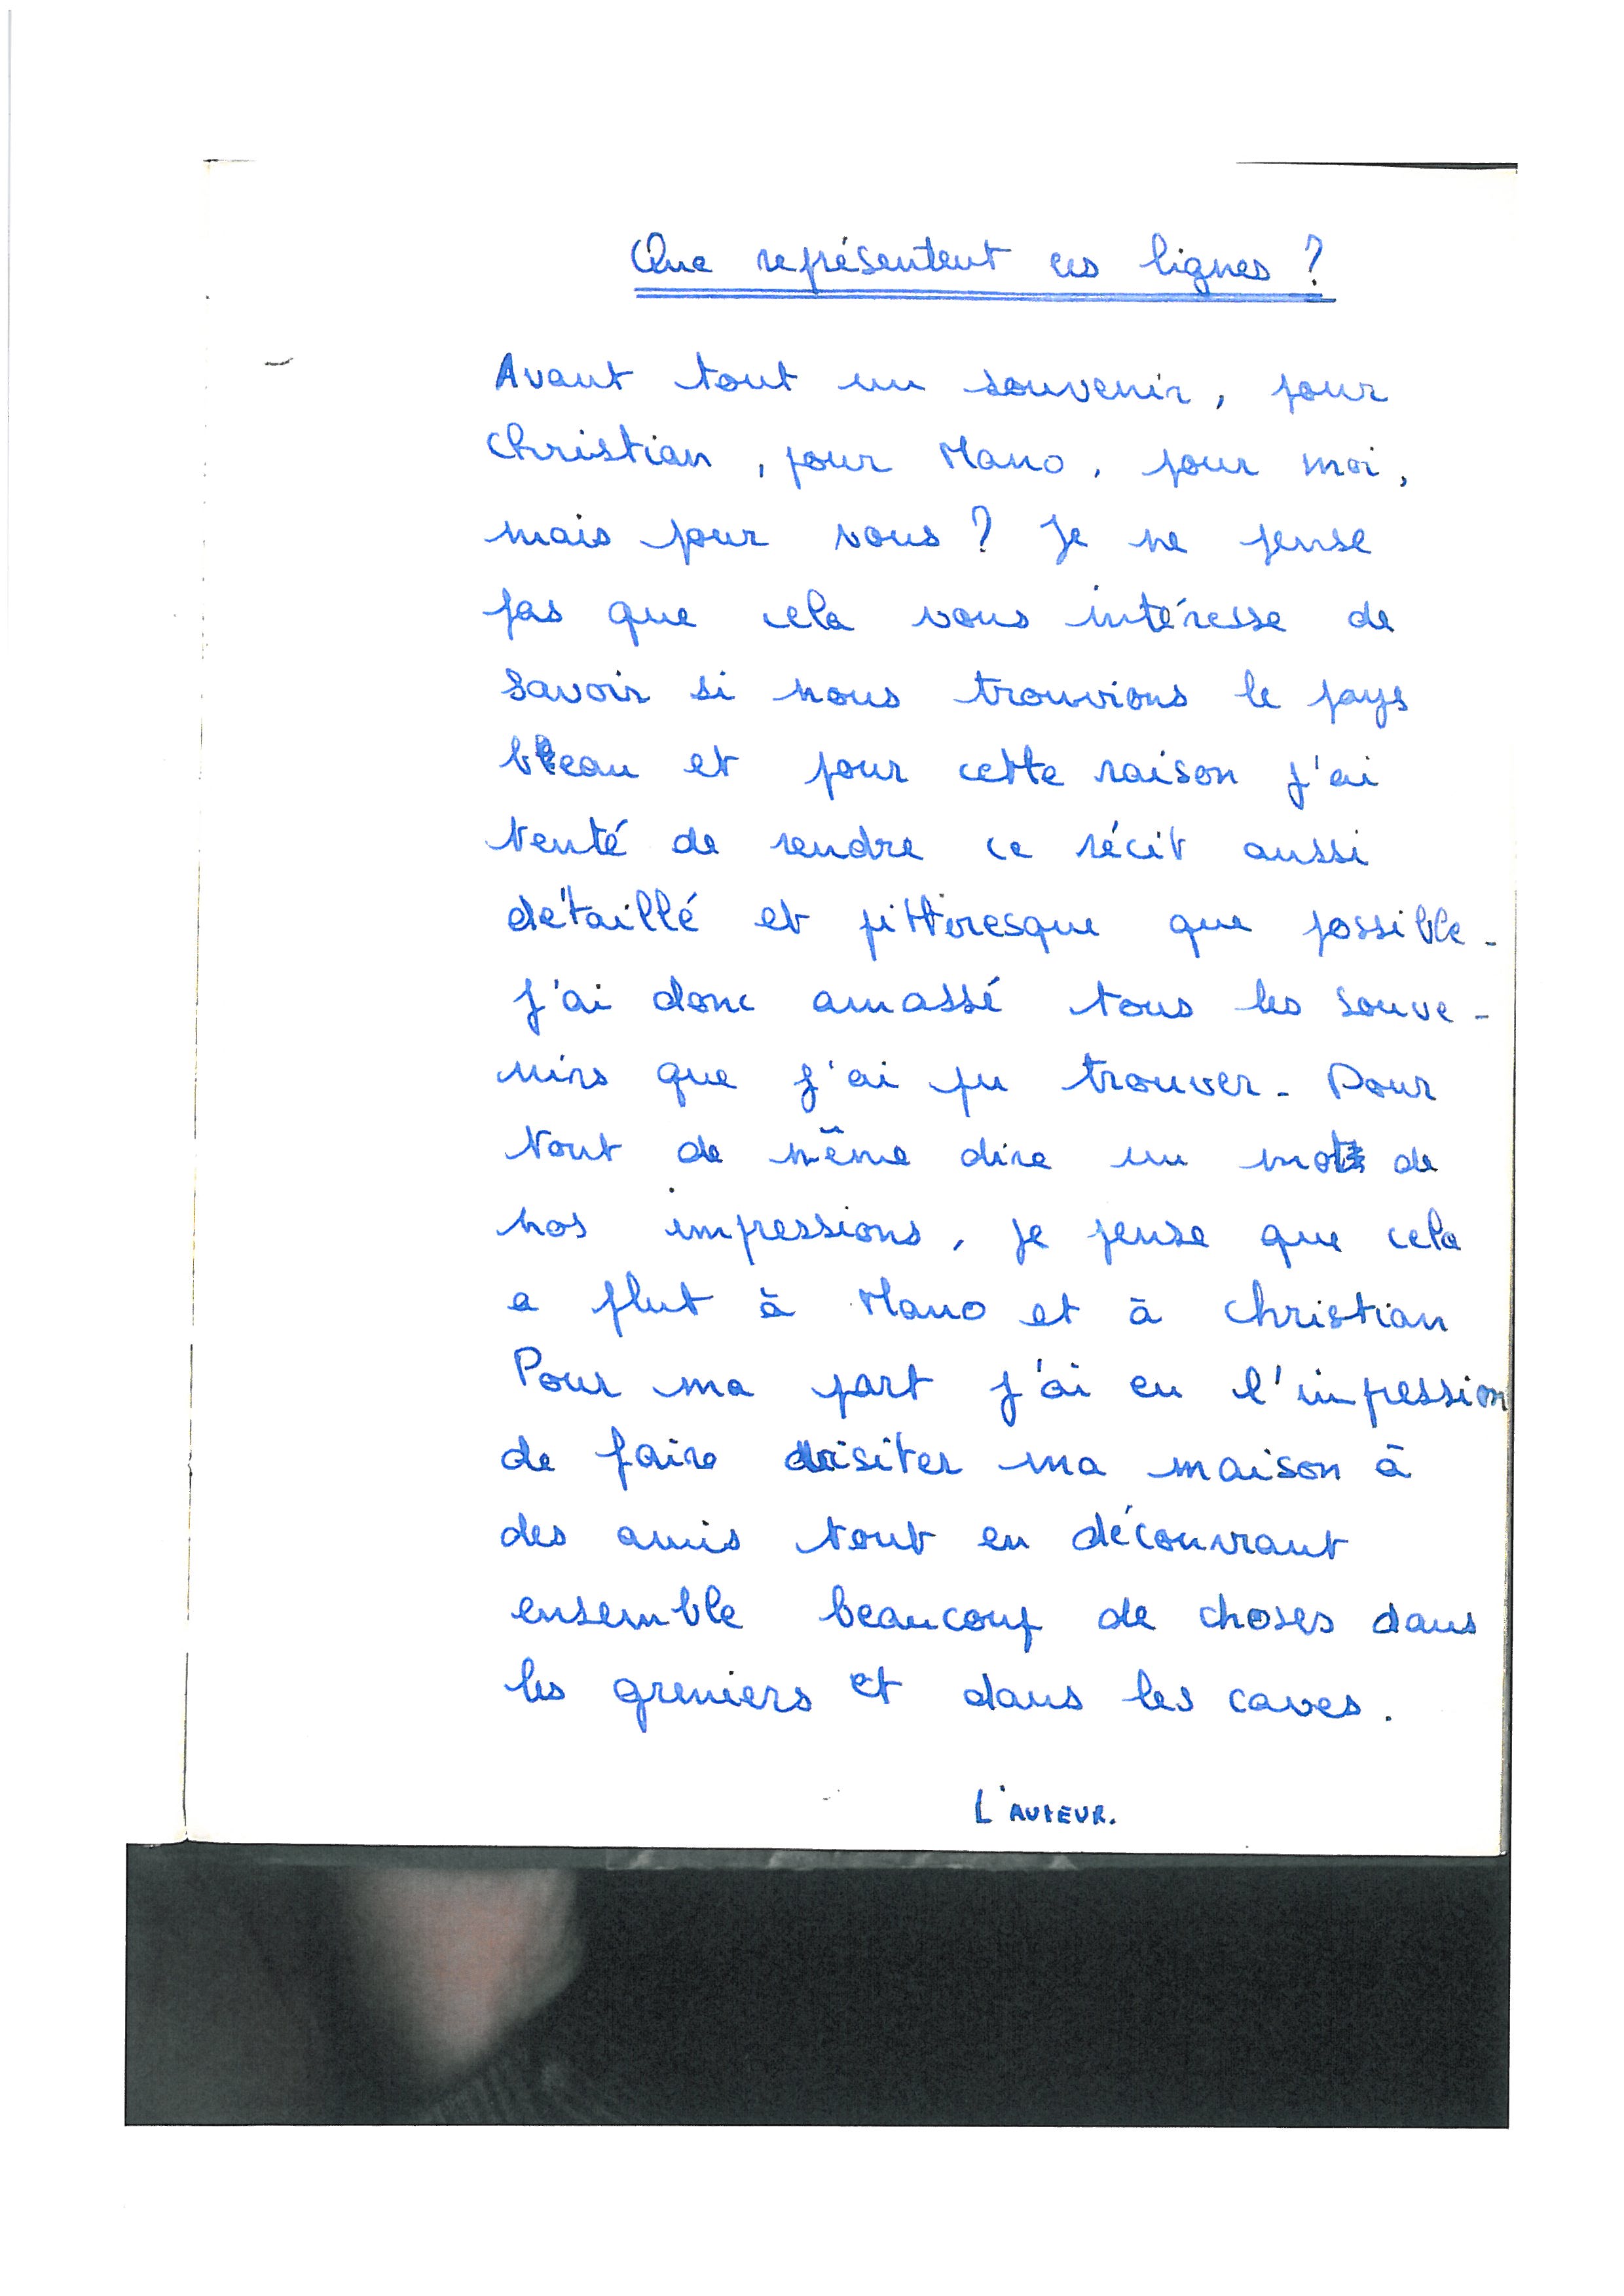 Que représentent ces lignes ?
Avant tout un souvenir, pour
Christian, pour Mano, pour moi,
mais pour vous ? Je ne pense
pas que cela vous intéresse de
savoir si nous trouvions le pays
beau et pour cette raison j'ai
tenté de rendre ce récit aussi
détaillé et pittoresque que possible.
J'ai donc amassé tous les souve-
nirs que j'ai pu trouver. Pour
tout de même dire un mot de
nos impressions, je pense que cela
a plut à Mano et à Christian
Pour ma part j'ai eu l'impression
de faire visiter ma maison à
des amis tout en découvrant
ensemble beaucoup de choses dans
les greniers et dans les caves.
L'AUTEUR.